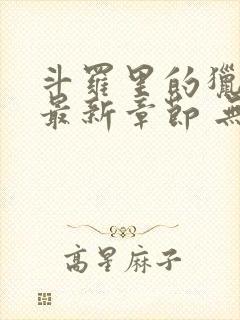 斗羅里的獵
最新章節 無
高星麻子